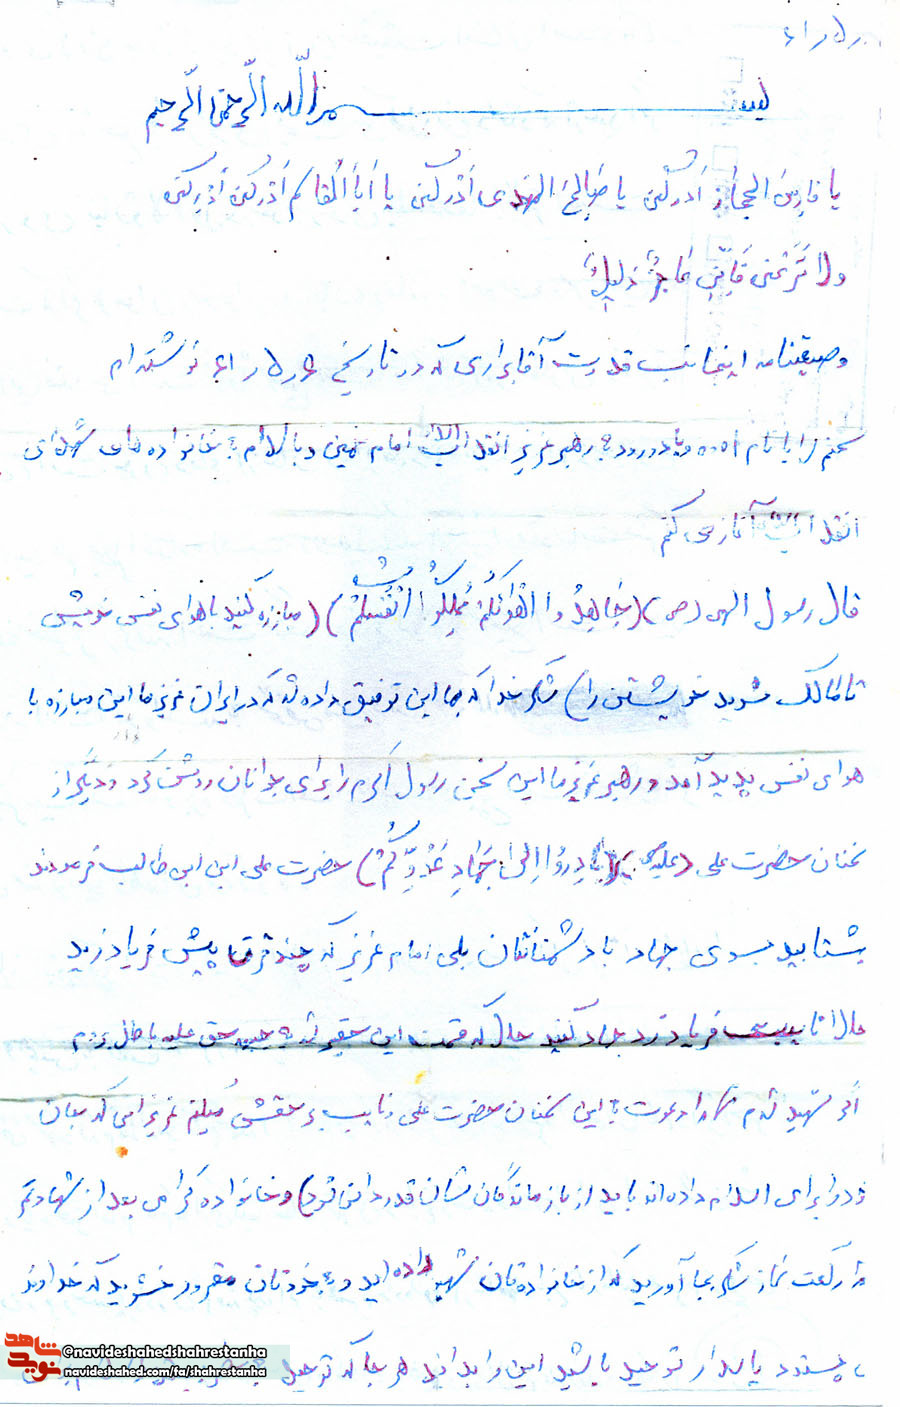 ۶۱/۵/
بسم الله الرحمن الرحیم
یا فارِسَ الحِجاز اَدْرِکْنی یا صٰالِحَ المَهدی اَدْرِکْنی یا اَبَا الْقاسِم اَدْرِکْنی اَدْرِکْنی
ولا تَدَعْنی فَاِنّی عٰاجِزٌ ذَلیلٌ
وصیتنامه اینجانب قدرت آقابراری که در تاریخ ۶۱/۵/۶ نوشته‌ام
سخنم را با نام ا... و با درود به رهبر عزیز انقلاب امام خمینی و با سلام به خانواده های شهدای
انقلاب آغاز می کنم
قال رسول الهی (ص) (جٰاهِدُوا اَهْوٰائَکُمْ تَمْلِکُوا اَنْفُسَکُمْ) (مبارزه کنید با هوای نفس خویش
تا مالک شوید خویشتن را) شکر خدا که بما این توفیق داده شد که در ایران عزیز ما این مبارزه با
هوای نفس پدید آمد و رهبر عزیز ما این سخن رسول اکرم را برای جوانان روشن کرد و دیگر از
سخنان حضرت علی (علیه) بٰادِرُوا اِلیٰ جِهٰادِ عَدُوِّکُمْ) حضرت علی ابن ابی طالب فرمودند
بشتابید بسوی جهاد با دشمنانتان بلی امام عزیز که چند قرن پیش فریاد زدند
حالا نایب فریاد زد جهاد کنید حال که قسمت این حقیر شد به جبهه حق علیه باطل بروم
اگر شهید شدم شما را دعوت به این سخنان حضرت علی و نایب بر حقش میکنم عزیزانی که جان
خود را برای اسلام داده اند باید از بازماندگان شان قدردانی شود) و خانواده گرامی بعد از شهادتم
دو رکعت نماز شکر بجا آورید که از خانواده تان شهید داده اید و به خودتان مغرور نشوید که خداوند
پاسدار توحید باشید این را بدانید هر جا که توحید
شاهد
نوید
@navideshahedshahrestanha
navideshahed.com/fa/shahrestanha